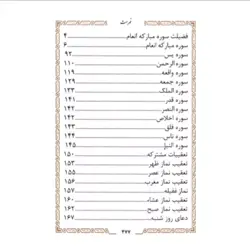 فهرست
فضیلت سوره مبارکه انعام ۴
سوره مبارکه انعام ۶
سوره یس ۹۲
سوره الرحمن ۱۱۰
سوره واقعه ۱۱۹
سوره جمعه ۱۲۹
سوره الملک ۱۳۳
سوره قدر ۱۴۱
سوره النصر ۱۴۲
سوره اخلاص ۱۴۲
سوره فلق ۱۴۳
سوره ناس ۱۴۴
سوره النبإ ۱۴۵
تعقیبات مشترکه ۱۵۰
تعقیب نماز ظهر ۱۵۳
تعقیب نماز عصر ۱۵۵
تعقیب نماز مغرب ۱۵۶
نماز غفیله ۱۵۷
تعقیب نماز عشاء ۱۶۰
تعقیب نماز صبح ۱۶۲
دعای روز شنبه ۱۶۷
۴۷۷